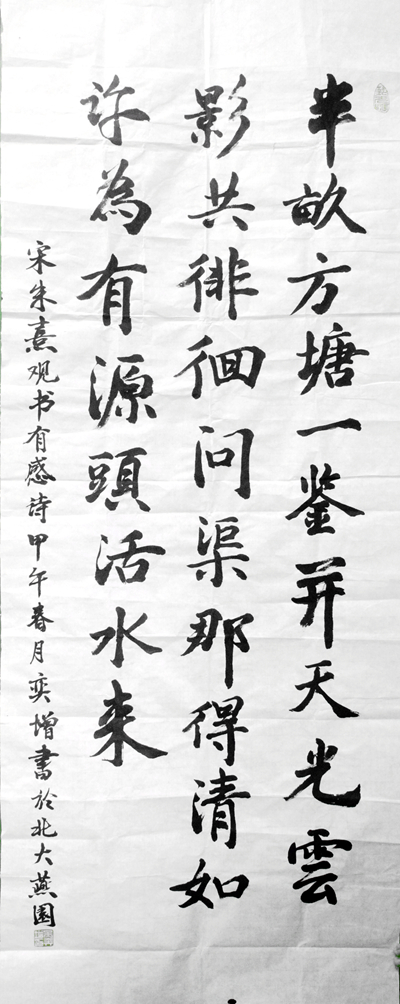 半畝方塘一鉴开天光雲
影共徘徊问渠那得清如
许為有源頭活水来
宋朱熹观书有感诗甲午春月奕增書於北大燕園